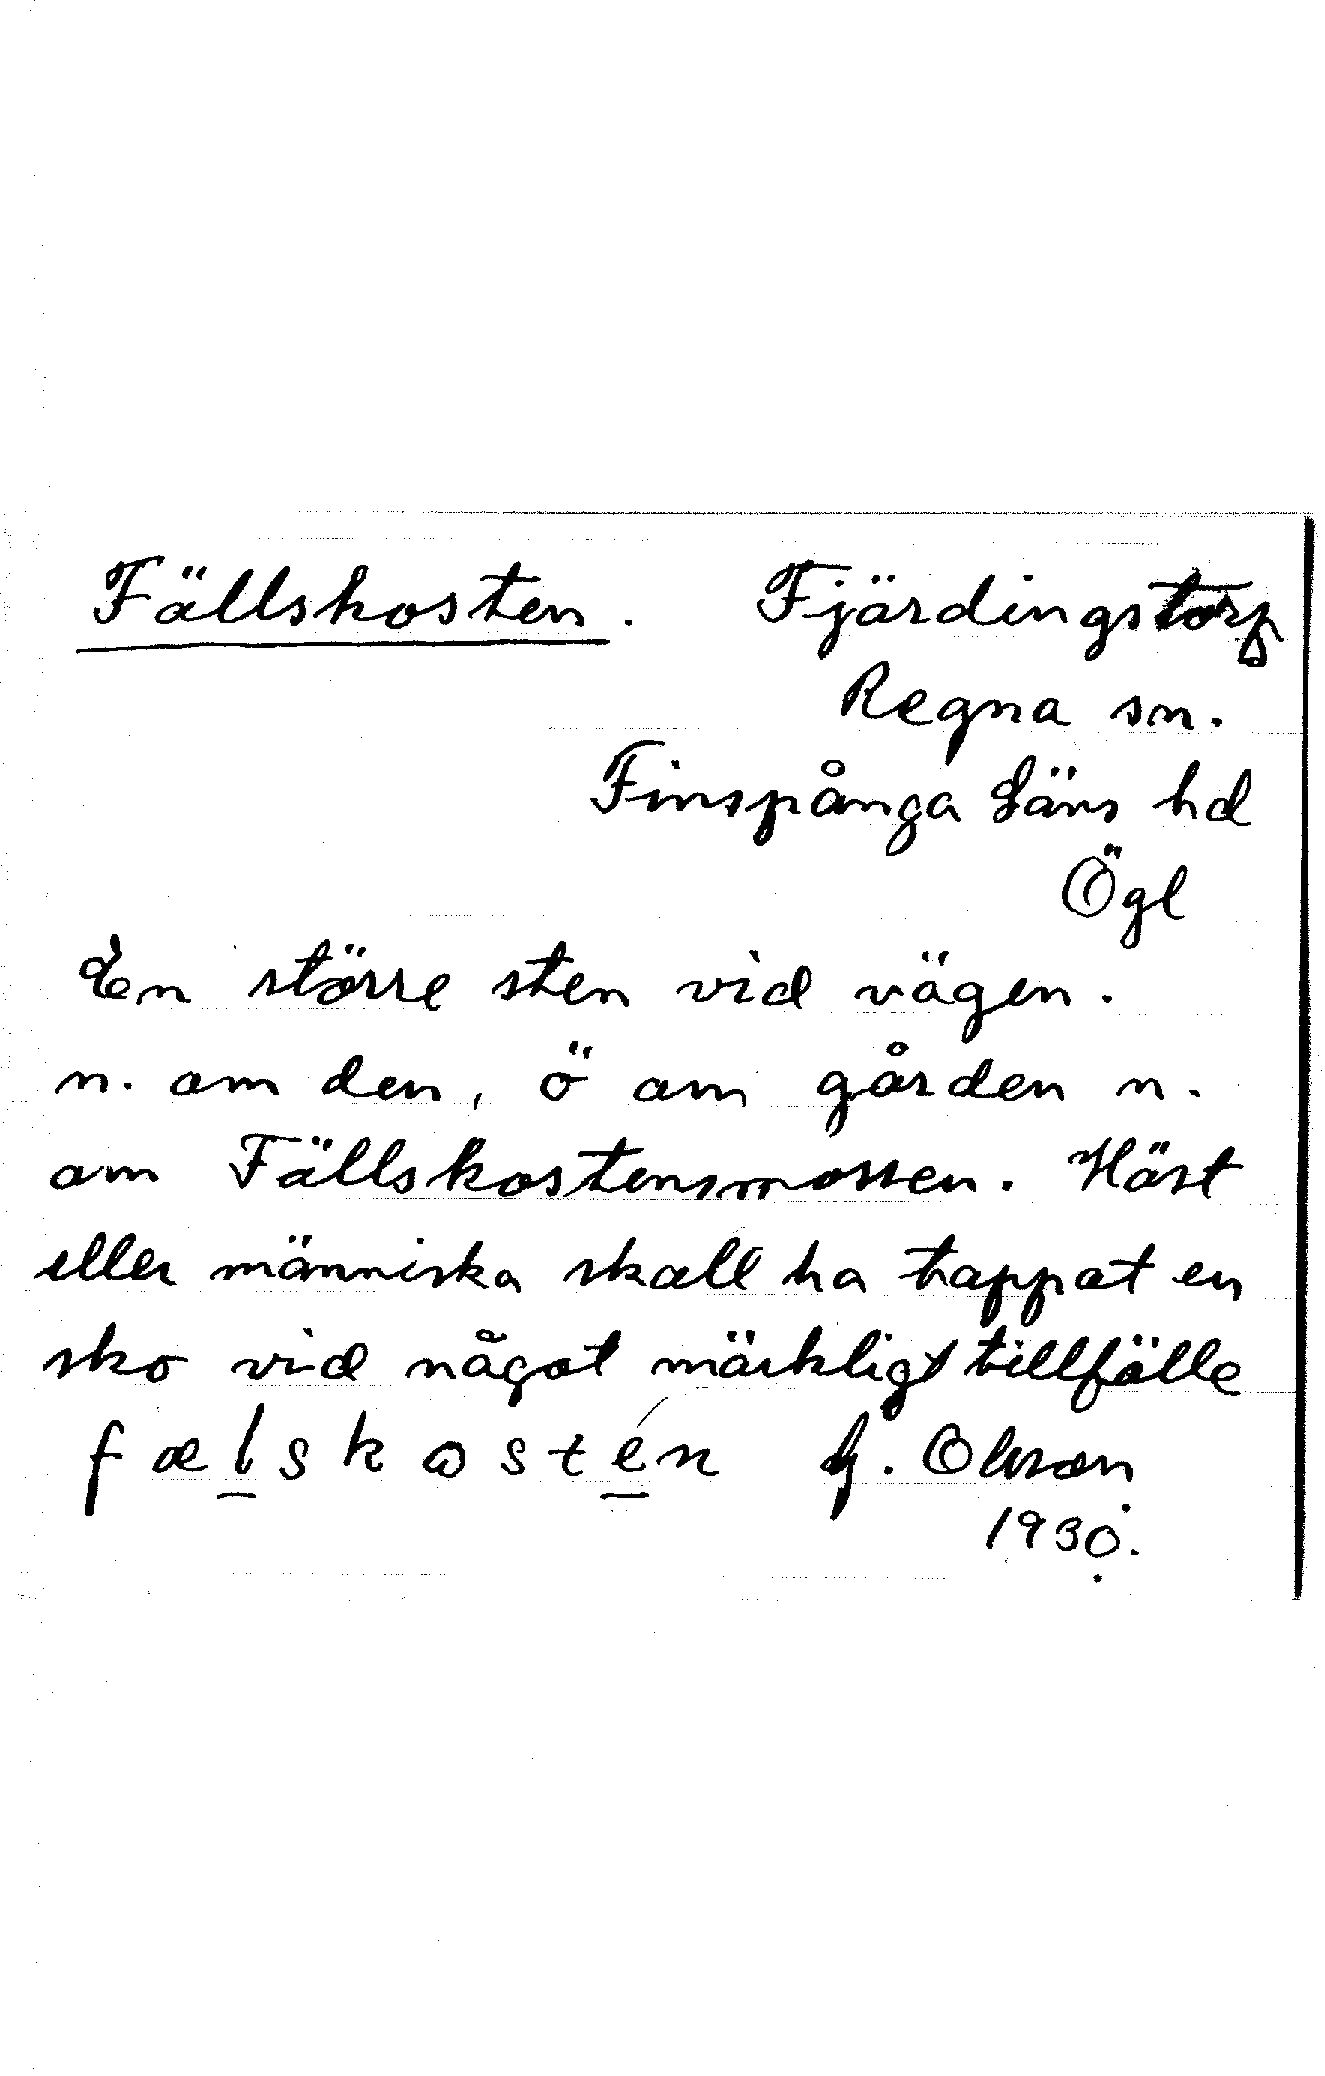 Fällskosten. Fjärdingstorp
Regna sn.
Finspånga Läns hd
Ögl
En större sten vid vägen.
n. om den, ö om gården n.
om Fällskostensmossen. Häst
eller människa skall ha tappat en
sko vid något märkligt tillfälle
fælskosten G. Olsson
1930.